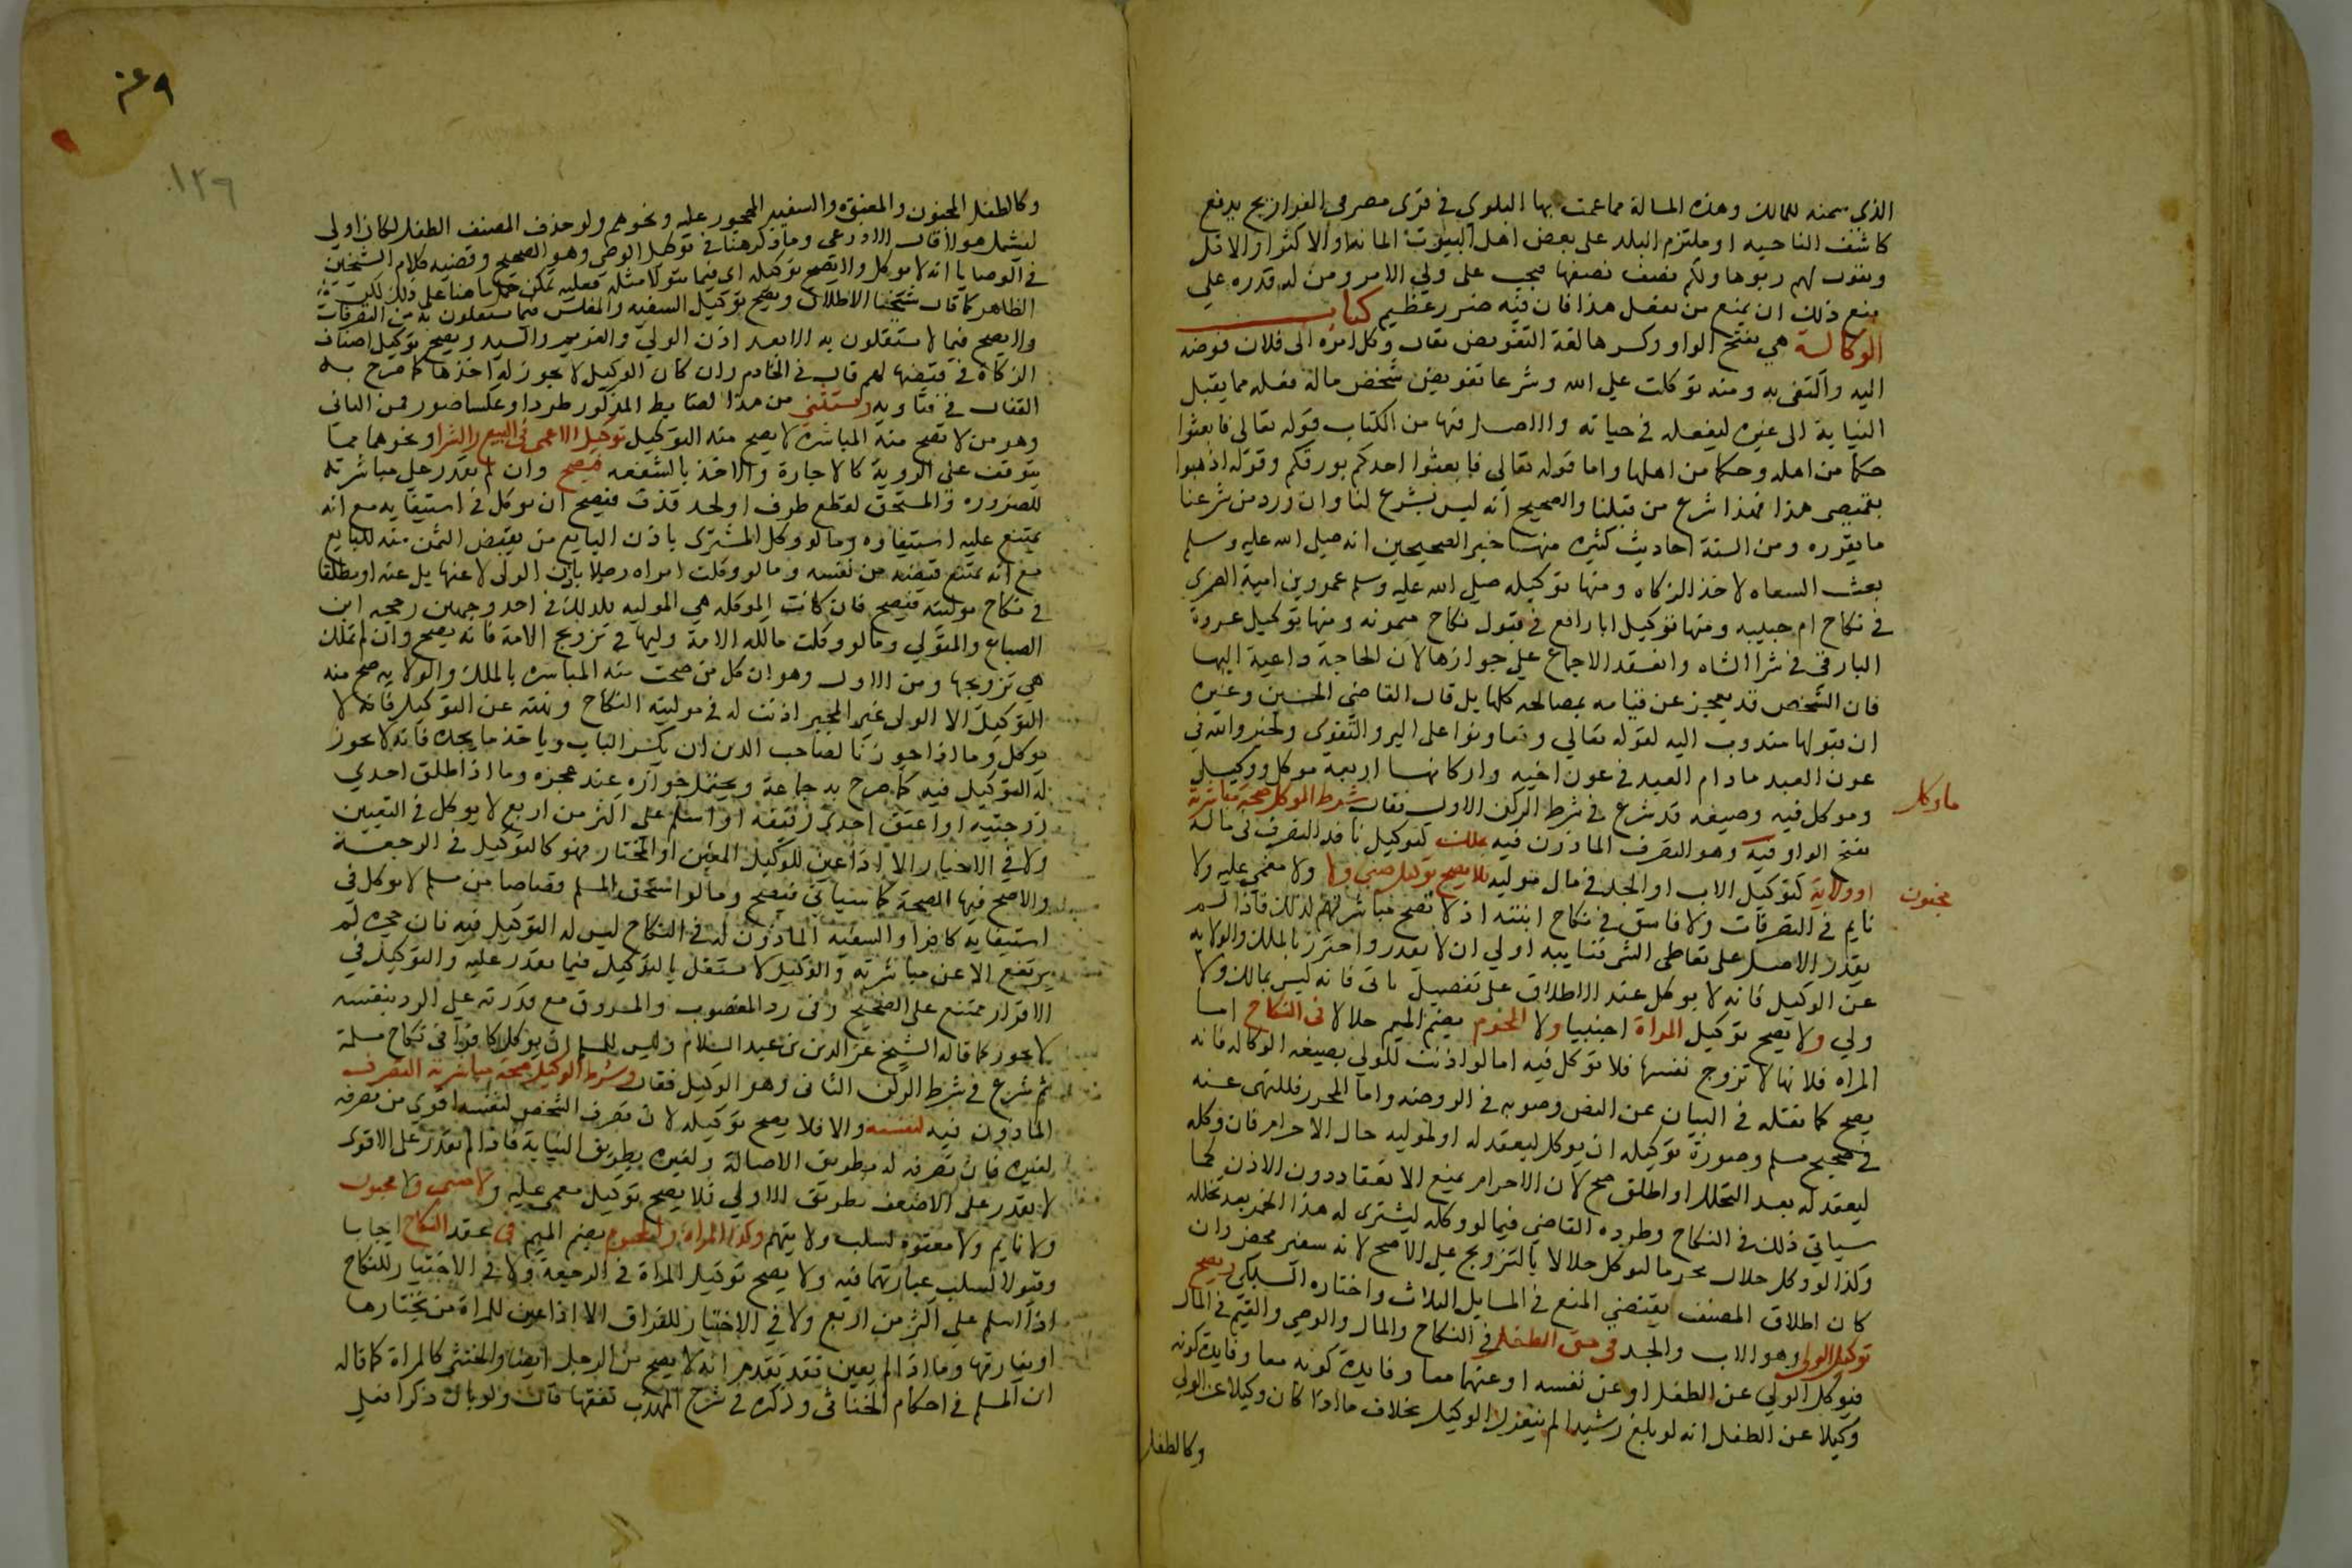 الذي يسمنه للمالك وهذه المسالة مما عمت بها البلوي في قرى مصر في الفراريج يدفع
كاشف الناحيه او ملتزم البلد على بعض اهل البيوت المائه او الاكثر او الاقل
ويقول لهم ربوها ولكم نصف نصفها فيجب على ولي الامر ومن له قدره علي
منع ذلك ان يمنع من يفعل هذا فان فيه ضررعظيم كتاب
الوكالة هي بفتح الواو وكسرها لغة التفويض يقال وكل امره الى فلان فوضه
اليه واكتفى به ومنه توكلت علي الله وشرعا تفويض شخص ماله فعله مما يقبل
النيابة الى غيره ليفعله في حياته والاصل فيها من الكتاب قوله تعالى فابعثوا
حكما من اهله وحكما من اهلها واما قوله تعالي فابعثوا احدكم بورقكم وقوله اذهبوا
بقميصي هذا فهذا شرع من قبلنا والصحيح انه ليس بشرع لنا وان ورد من شرعنا
ما يقرره ومن السنة احاديث كثيره منها خبر الصحيحين انه صلي الله عليه وسلم
بعث السعاه لاخذ الزكاه ومنها توكيله صلي الله عليه وسلم عمرو بن امية الضمري
في نكاح ام حبيبه ومنها توكيل ابا رافع في قبول نكاح ميمونه ومنها توكيل عروة
البارقي في شرا الشاه وانعقد الاجماع علي جوازها لان الحاجة داعية اليها
فان الشخص قد يعجز عن قيامه بمصالحه كلها بل قال القاضي الحسين وغيره
ان قبولها مندوب اليه لقوله تعالي وتعاونوا على البر والتقوى ولخبر والله في
عون العبد مادام العبد في عون اخيه واركانها اربعة موكل ووكيل
وموكل فيه وصيغه قد شرع في شرط الركن الاول فقال شرط الموكل صحة مباشرته
ما وكل
بفتح الواو فيه وهو التصرف الماذون فيه بملك كتوكيل نافذ التصرف في ماله
او ولاية كتوكيل الاب او الجد في مال موليه فلا يصح توكيل صبي ولا ولا مغمي عليه ولا
مجنون
نايم في التصرفات ولا فاسق في نكاح ابنته اذ لا تصح مباشرتهم لذلك فاذا لم
يقدر الاصل على تعاطي الشي فنايبه اولي ان لا يقدر واحترز بالملك والولايه
عن الوكيل فانه لا يوكل عند الاطلاق على تفصيل ياتي فانه ليس بمالك ولا
ولي ولا يصح توكيل المراة اجنبيا ولا المحرم بضم الميم حلالا في النكاح اما
المراه فلانها لا تزوج نفسها فلا توكل فيه اما لو اذنت للولي بصيغه الوكاله فانه
يصح كما نقله في البيان عن النص وصوبه في الروضه واما المحرم فللنهى عنه
في صحيح مسلم وصورة توكيله ان يوكل ليعقد له او لموليه حال الاحرام فان وكله
ليعقد له بعد التحلل او اطلق صح لان الاحرام يمنع الانعقاد دون الاذن كما
سياتي ذلك في النكاح وطرده القاضي فيما لو وكله ليشتري له هذا الخمر بعد تخلله
وكذا لو وكل حلال محرما ليوكل حلالا بالتزويج علي الاصح لانه سفير محض وان
كان اطلاق المصنف يقتضي المنع في المسايل الثلاث واختاره السبكي ويصح
توكيل الولي وهو الاب والجد في حق الطفل في النكاح والمال والوصي والقيم في المال
فيوكل الولي عن الطفل او عن نفسه او عنهما معا وفايدة كونه معا وفايدة كونه
وكيلا عن الطفل انه لو بلغ رشيدا لم ينعزل الوكيل بخلاف ما اذا كان وكيلا عن الولي
وكالطفل
١٢٩
وكالطفل المجنون والمعتوه والسفيه المحجور عليه ونحوهم ولو حذف المصنف الطفل لكان اولي
ليشمل هولا قال الاذرعي وما ذكر هنا في توكيل الوصي وهو الصحيح وقضيه كلام الشيخين
في الوصايا انه لا يوكل ولا يصح توكيله اي فيما يتولا مثله فعليه يمكن حمل ما هنا على ذلك لكن
الظاهر كما قال شيخنا الاطلاق ويصح توكيل السفيه والمفلس فيما يستقلون به من التصرفات
ولا يصح فيما لا يستقلون به الا بعد اذن الولي والغريم والسيد ويصح توكيل اصناف
الزكاة في قبضها لهم قال في الخادم وان كان الوكيل لا يجوز له اخذها كما صرح به
القفال في فتاويه ويستثني من هذا الضابط المذكور طردا وعكسا صور فمن الثاني
وهو من لا تصح منه المباشرة لا يصح منه التوكيل توكيل الاعمى في البيع والشرا ونحوهما مما
يتوقف على الروية كالاجارة والاخذ بالشفعه فيصح وان لم يقدر علي مباشرته
للضروره والمستحق لقطع طرف او لحد قذف فيصح ان يوكل في استيفايه مع انه
يمتنع عليه استيفاوه وما لو وكل المشتري باذن البايع من يقبض الثمن منه للبايع
مع انه يمتنع قبضه من نفسه وما لو وكلت امراه رجلا باذن الولى لا عنها بل عنه او مطلقا
في نكاح موليته فيصح فان كانت الموكله هي الموليه فكذلك في احد وجهين رجحه ابن
الصباغ والمتولي وما لو وكلت مالكه الامة وليها في تزويج الامة فانه يصح وان لم تملك
هي تزويجها ومن الاول وهو ان كل من صحت منه المباشره بالملك والولايه صح منه
التوكيل الا الولي غير المجبر اذنت له في موليته النكاح ونهته عن التوكيل فانه لا
يوكل وما اذا جوزنا لصاحب الدين ان يكسر الباب وياخذ ما يجده فانه لا يجوز
له التوكيل فيه كما صرح به جماعة ويحتمل جوازه عند عجزه وما اذا طلق احدي
زوجتيه او اعتق احدي رقيقه او اسلم على اكثر من اربع لا يوكل في التعيين
ولا في الاختيار الا اذا عين للوكيل المعين او المختار فهو كالتوكيل في الرجعة
والاصح فيها الصحة كما سياتي فيصح وما لو استحق المسلم قصاصا من مسلم لا يوكل في
استيفايه كافرا والسفيه الماذون له في النكاح ليس له التوكيل فيه فان حجره لم
يرتفع الا عن مباشرته والوكيل لا يستقل بالتوكيل فيما يقدر عليه والتوكيل في
الاقرار ممتنع على الصحيح وفي رد المغصوب والمسروق مع قدرته علي الرد بنفسه
لا يجوز كما قاله الشيخ عز الدين بن عبد السلام وليس للمسلم ان يوكل كافرا في نكاح مسلمة
ثم شرع في شرط الركن الثاني وهو الوكيل فقال وشرط الوكيل صحة مباشرته التصرف
الماذون فيه لنفسه والا فلا يصح توكيله لان تصرف الشخص لنفسه اقوي من تصرفه
لغيره فان تصرفه له بطريق الاصالة ولغيره بطريق النيابة فاذا لم يقدر على الاقوى
لا يقدر على الاضعف بطريق الاولي فلا يصح توكيل مغمى عليه ولا صبي ولا مجنون
ولا نايم ولا معتوه لسلب ولايتهم وكذا المراة والمحرم بضم الميم في عقد النكاح ايجابا
وقبولا لسلب عبارتهما فيه ولا يصح توكيل المراة في الرجعة ولا في الاختيار للنكاح
اذا اسلم علي اكثر من اربع ولا في الاختيار للفراق الا اذا عين للمراة من يختارها
او يفارقها وما اذا لم يعين فقد تقدم انه لا يصح من الرجل ايضا والخنثى كالمراة كما قاله
ابن المسلم في احكام الخناثى وذكره في شرح المهذب تفقها فان ولو بان ذكرا فعلي